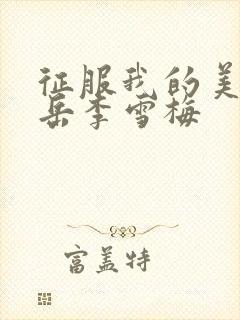 征服我的美
岳李雪梅
富盖特